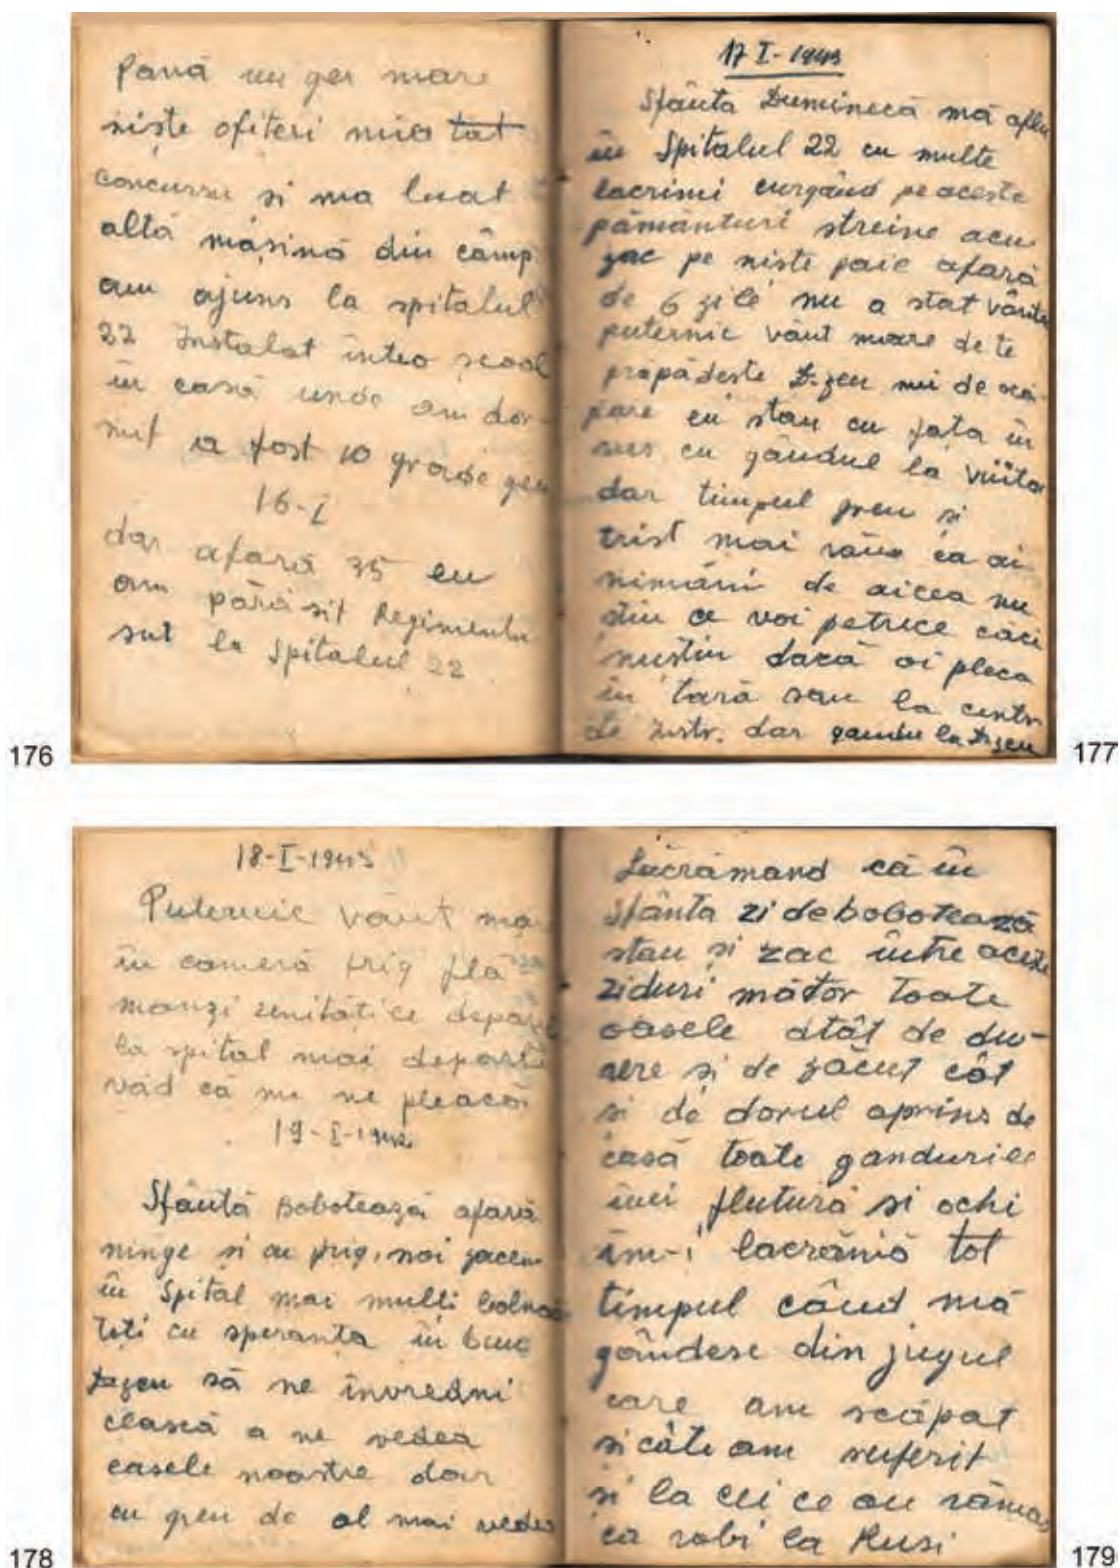 pană un ger mare
niște ofiteri mia tat
concursu si ma luat
altă mașină din câmp
am ajuns la spitalul
22 Instalat intro școal
in casă unde am dor-
mit a fost 10 grade ger
16-I
dar afară 35 eu
am părăsit Regimentu
sut la Spitalul 22
176
17 I-1943
Sfânta Duminecă mă aflu
în Spitalul 22 cu multe
lacrimi curgând pe aceste
pământuri streine acu
zac pe niste paie afară
de 6 zile nu a stat vântu
puternic vânt mare de te
prăpădeste D-zeu mi de scă
pare eu stau cu fața în
sus cu gândul la viito
dar timpul greu si
trist mai rău ca ai
nimănui de aicea nu
știu ce voi petrece căci
nustiu dacă oi pleca
in tară sau la centr
de instr. dar gandu la D-zeu
177
18-I-1943
Puternic vânt ma
in cameră frig flă
manzi
la spital mai departe
văd că nu ne pleacă
19-I-1943
Sfântă Bobotează afară
ninge si cu frig, noi zacem
in Spital mai multi bolna
toti cu speranta in bun
D-zeu să ne invredni
cească a ne vedea
casele noastre dar
cu greu de al mai vedea
178
Lăcrămand că în
Sfânta zi de bobotează
stau și zac intre aceste
ziduri mădor toate
oasele atât de du-
rere si de zăcut cât
si de dorul aprins de
casă toate gandurile
imi flutură si ochi
îm-i lacrămă tot
timpul când mă
gândesc din jugul
care am scăpat
si câte am suferit
si la cei ce au rămas
ca robi la Rusi
179